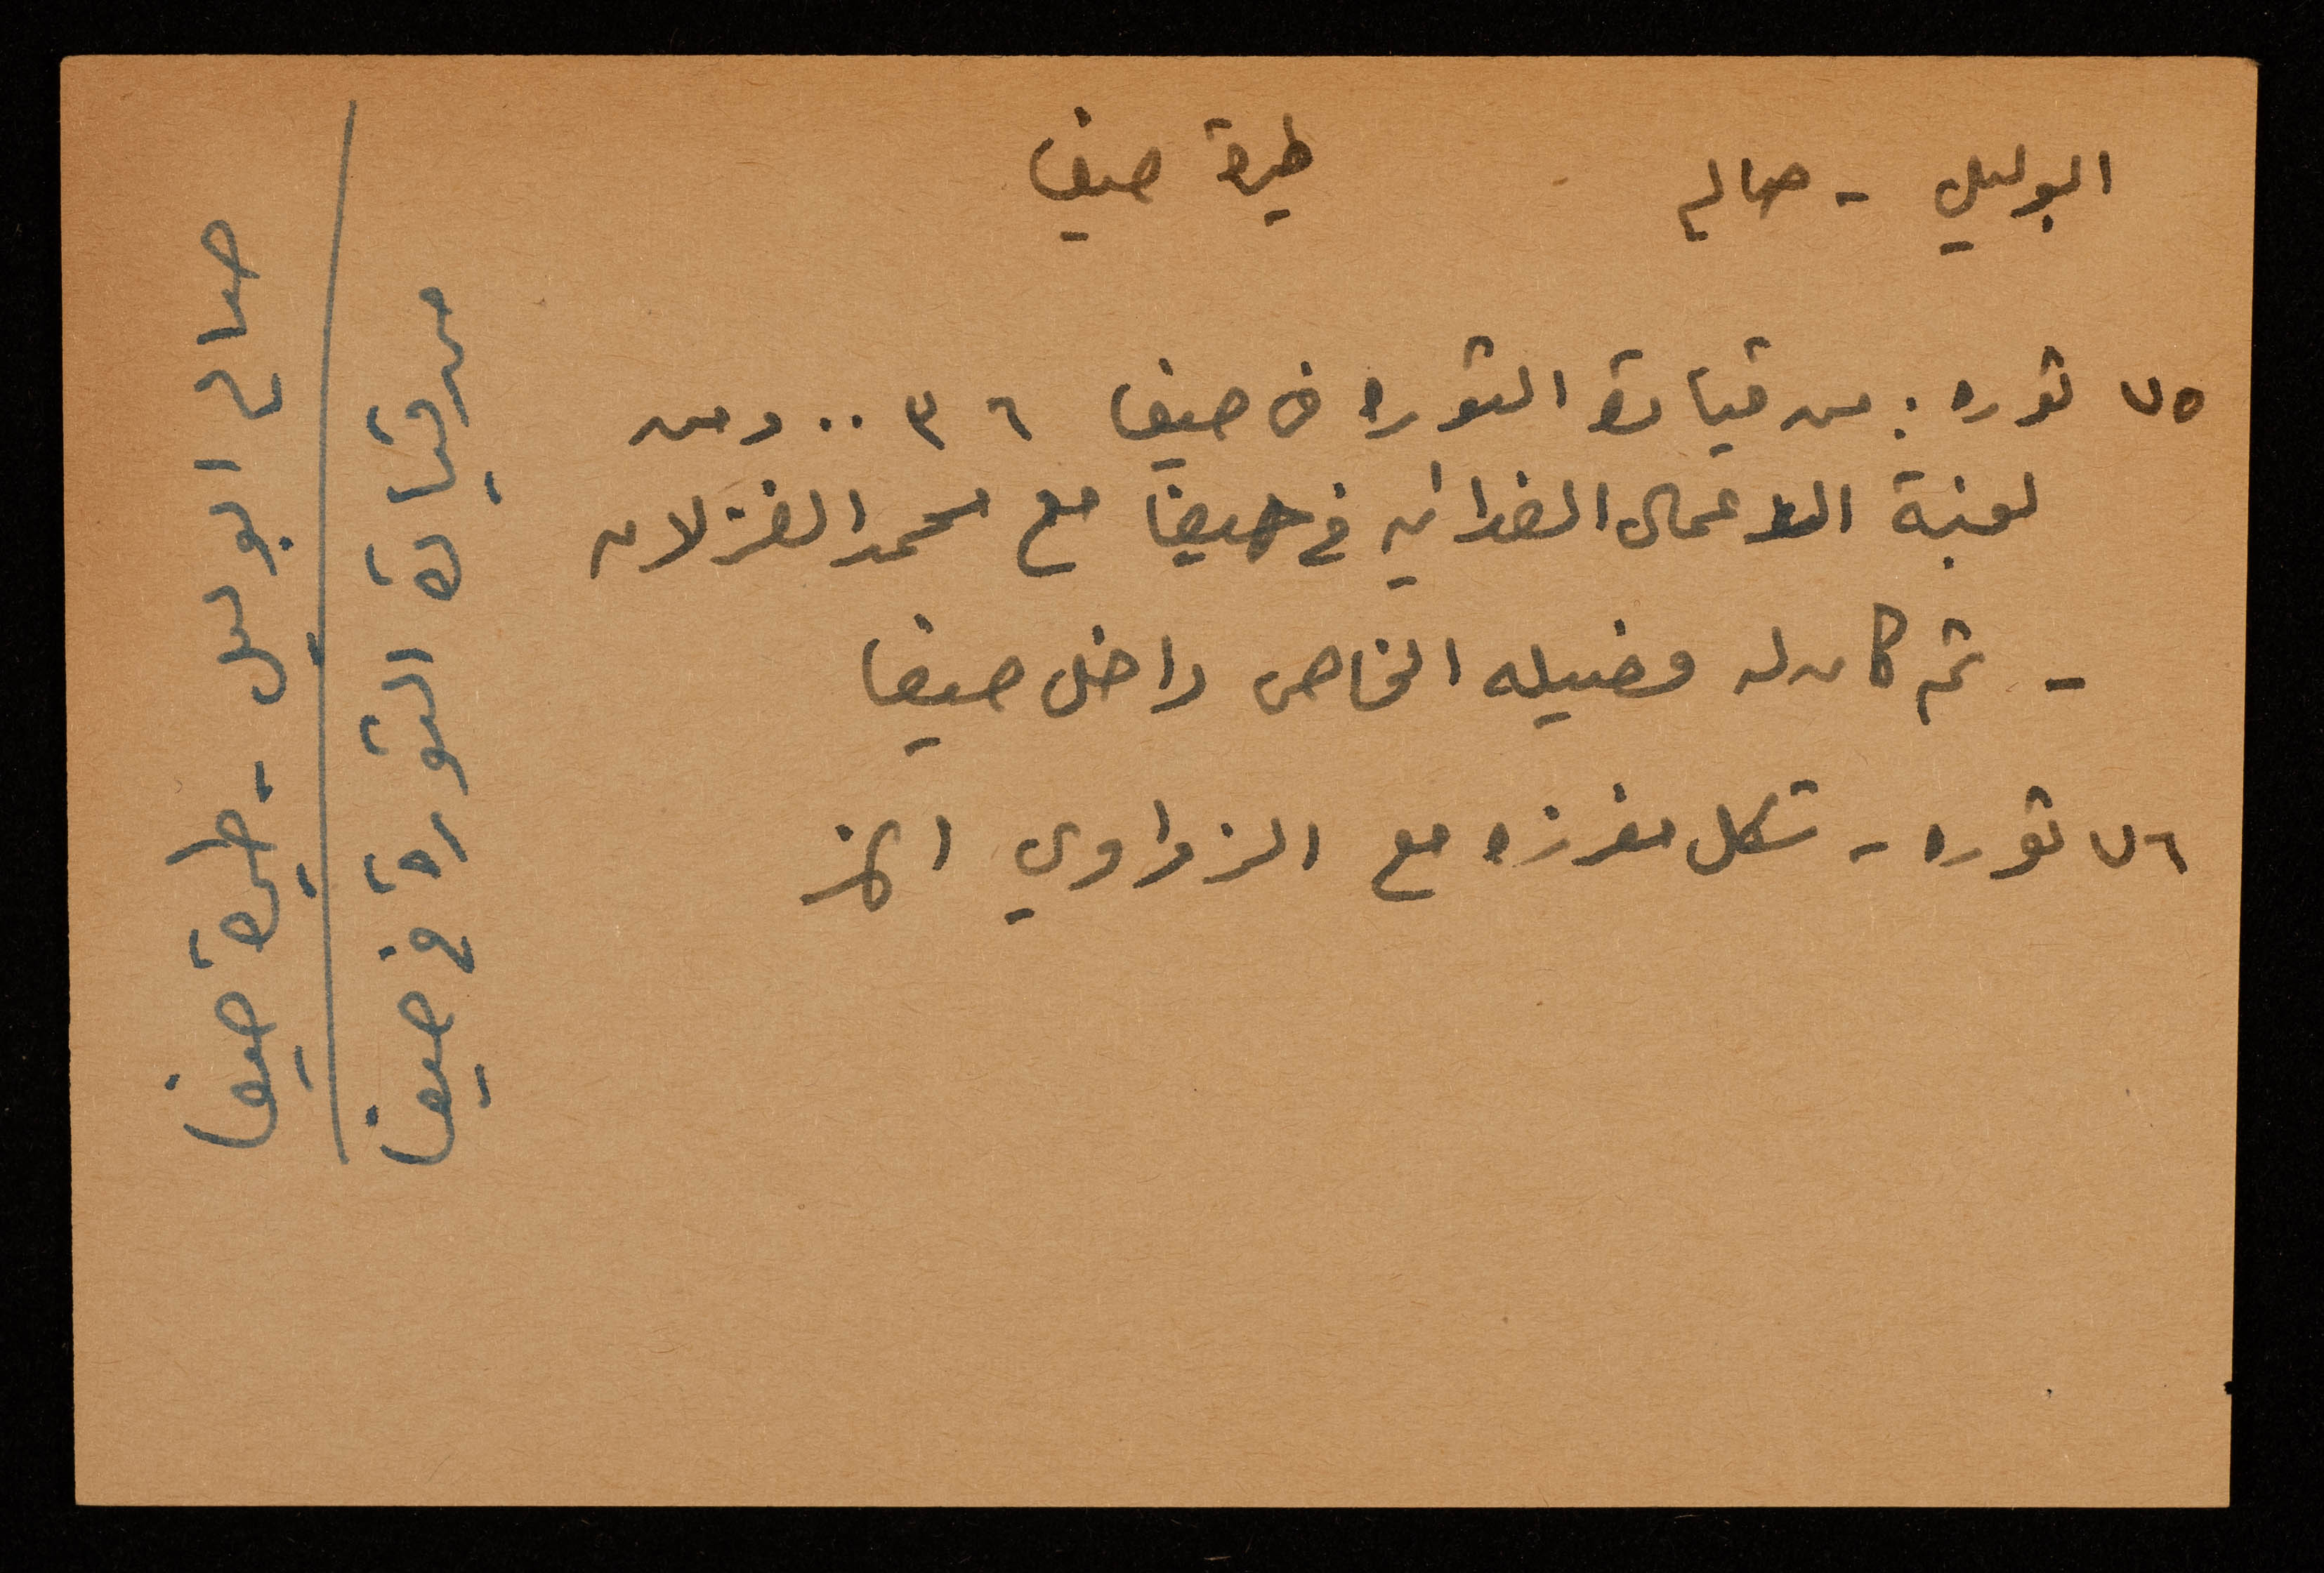 ابو ليل - صالح
طيرة حيفا
٧٥ ثوره: من قيادة الثوره في حيفا ٣٦ .. ومن
لجنة الاعمال الفدائيه في حيفا مع محمد الغزلان
- ثم كان له فصيله الخاص داخل حيفا
٧٦ ثوره - شكل مفرزه مع الزواوي
صالح ابو ليل - طيرة حيفا
من قيادة الثورة في حيفا